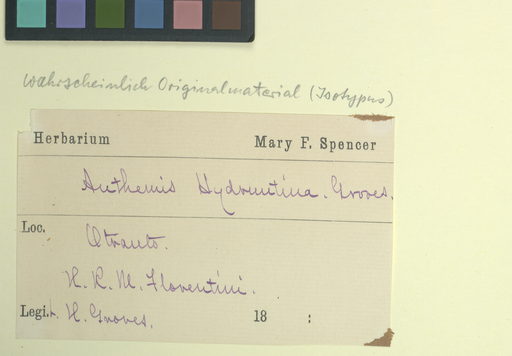 wahrscheinlich Originalmaterial (Isotypus)
Herbarium Mary F. Spencer
Anthemis Hydruntina. Groves.
Loc. Otranto.
H. R. M. Florentini.
Legit. H. Groves. 18 :